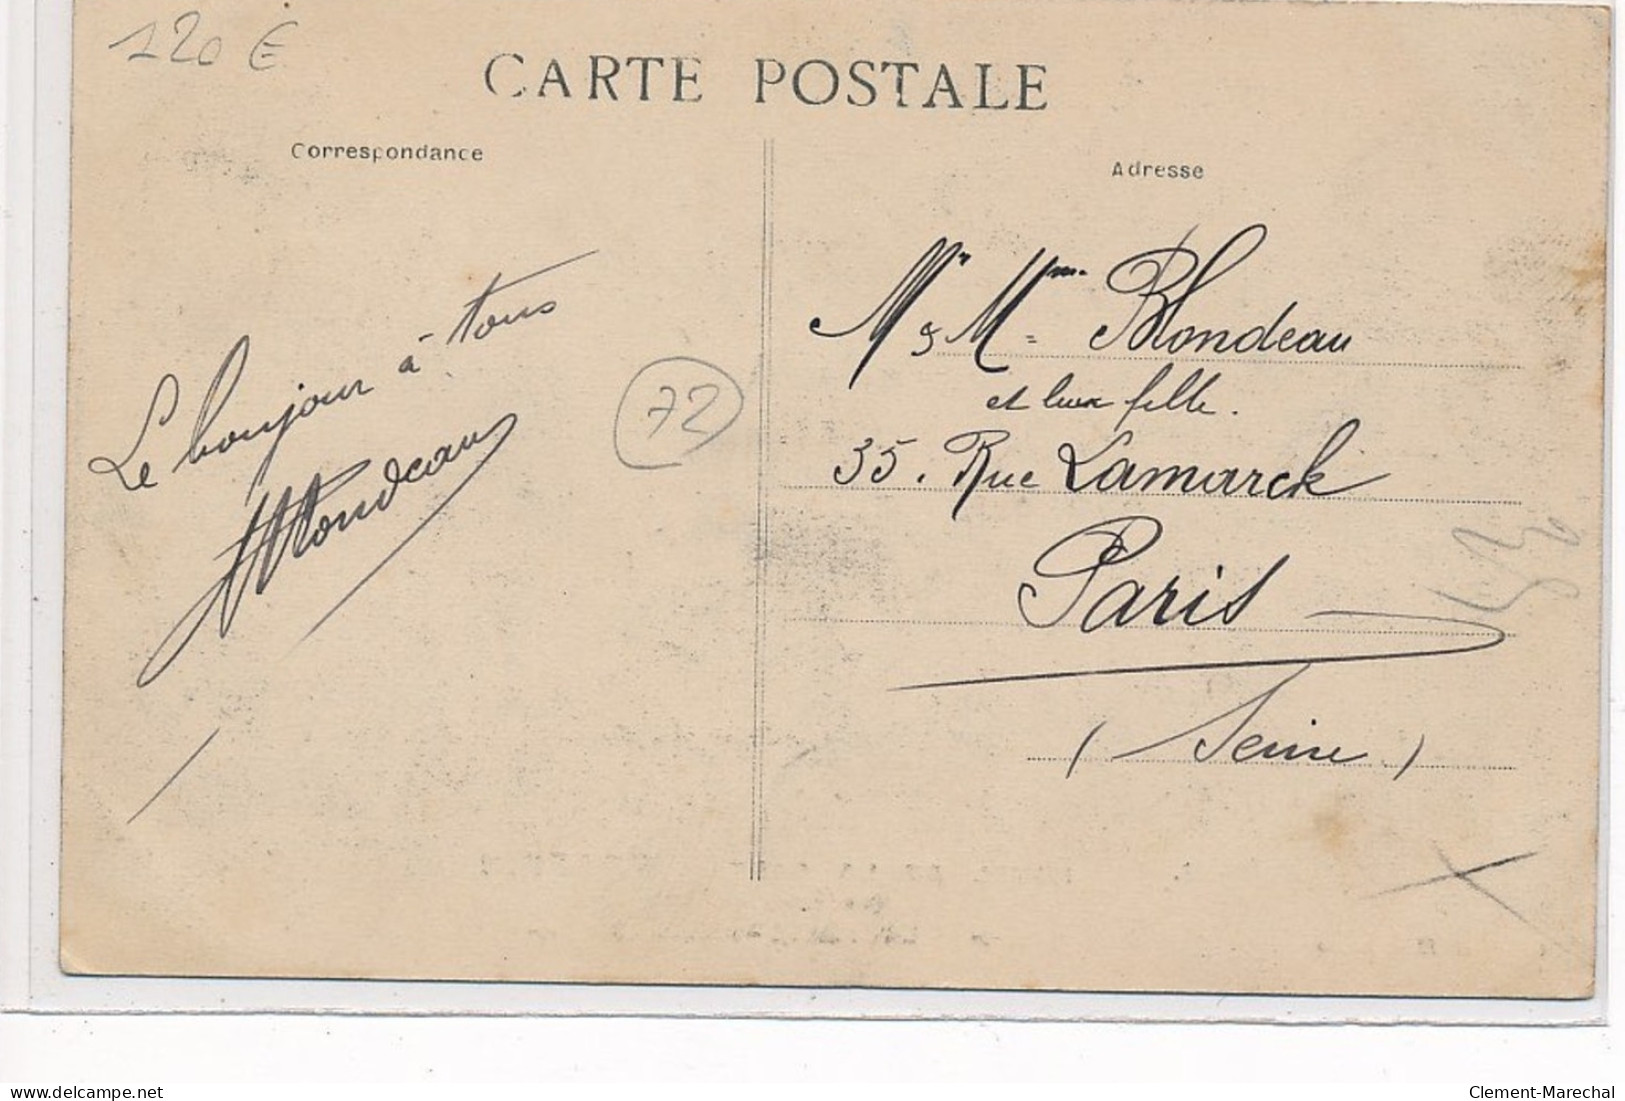 120 €
CARTE POSTALE
Correspondance
Adresse
Le bonjour à tous
Blondeau
72
Mr & Mme Blondeau
et leur fille.
35. Rue Lamarck
Paris
(Seine)
delcampe.net
Clement-Marechal